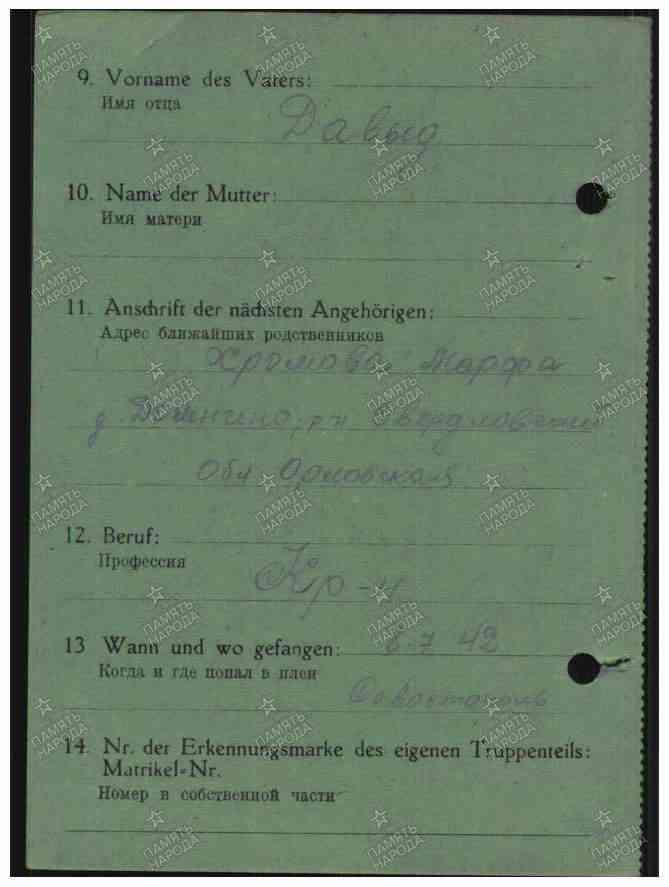 9. Vorname des Vaters:
Имя отца
Давыд
10. Name der Mutter:
Имя матери
11. Anschrift der nächsten Angehörigen:
Адрес ближайших родственников
Хромова Марфа
д. р-н Свердловский
Обл Орловская
12. Beruf:
Профессия
Кр-н
13 Wann und wo gefangen: 6.7 42
Когда и где попал в плен
Севостополь
14. Nr. der Erkennungsmarke des eigenen Truppenteils:
Matrikel-Nr.
Номер в собственной части